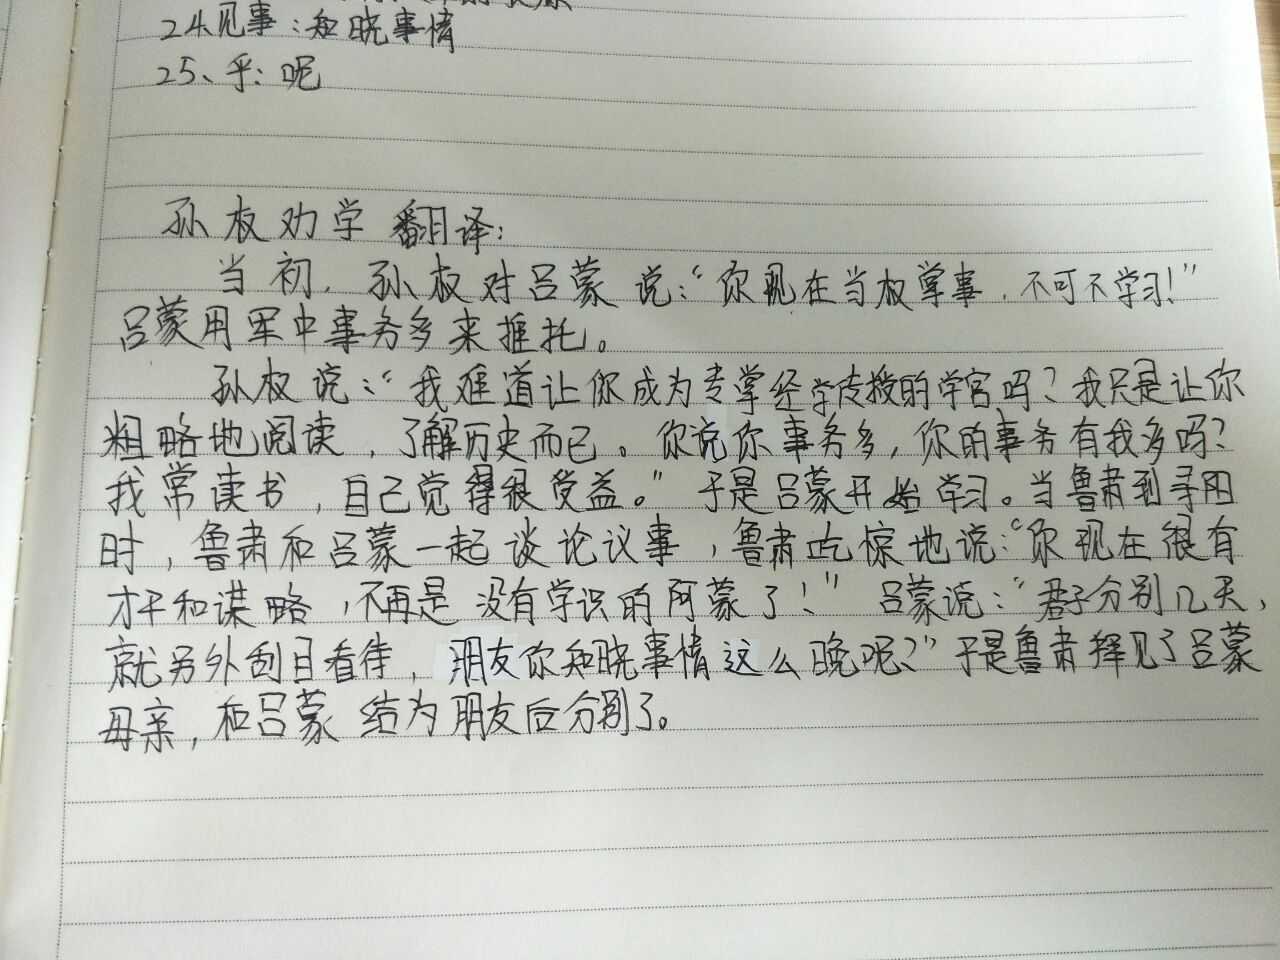 24、见事：知晓事情
25、乎：呢
孙权劝学 翻译：
当初，孙权对吕蒙说：“你现在当权掌事，不可不学习！”
吕蒙用军中事务多来推托。
孙权说：“我难道让你成为专掌经学传授的学官吗？我只是让你
粗略地阅读，了解历史而已。你说你事务多，你的事务有我多吗？
我常读书，自己觉得很受益。”于是吕蒙开始学习。当鲁肃到寻阳
时，鲁肃和吕蒙一起谈论议事，鲁肃吃惊地说：“你现在很有
才干和谋略，不再是没有学识的阿蒙了！”吕蒙说：“君子分别几天，
就另外刮目看待，朋友你知晓事情这么晚呢？”于是鲁肃拜见了吕蒙
母亲，和吕蒙结为朋友后分别了。